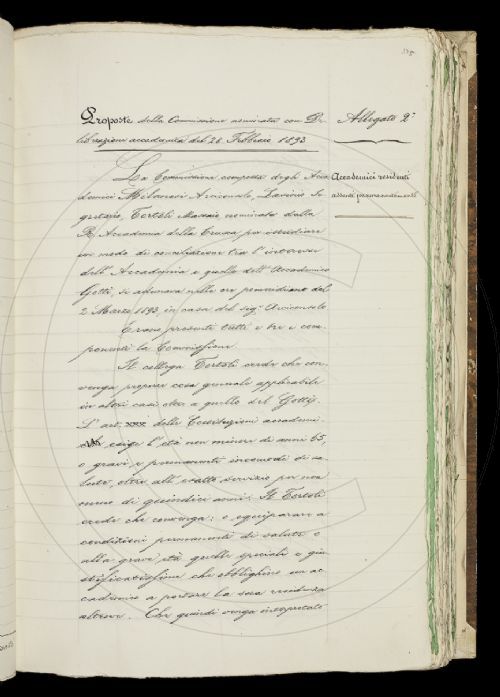 Proposte della Commissione nominata con De-
liberazione accademica del 28 Febbraio 1893
Allegato 2°
Accademici residenti
assenti permanentemente
La Commissione composta degli Acca-
demici Milanesi Arciconsolo, Se-
gretario, Tortoli Massaio nominata dalla
R. Accademia della Crusca per istudiare
un modo di conciliazione tra l'interesse
dell'Accademia e quello dell'Accademico
Gotti, si adunava nelle ore pomeridiane del
2 Marzo 1893, in casa del sig.r Arciconsolo
Erano presenti tutti e tre i com-
ponenti la Commissione.
Il collega Tortoli crede che con-
venga proporre cosa generale applicabile
in altri casi oltre a quello del Gotti.
L'art. XXX delle Costituzioni accademi-
che esige l'età non minore di anni 65,
o gravi e permanenti incomodi di sa-
lute, oltre allo esatto servizio per non
meno di quindici anni. Il Tortoli
crede che convenga: o equiparare a
condizioni permanenti di salute e
alla grave età quelle speciali e giu-
stificatissime che obblighino un ac-
cademico a portare la sua residenza
altrove. Che quindi venga interpretato